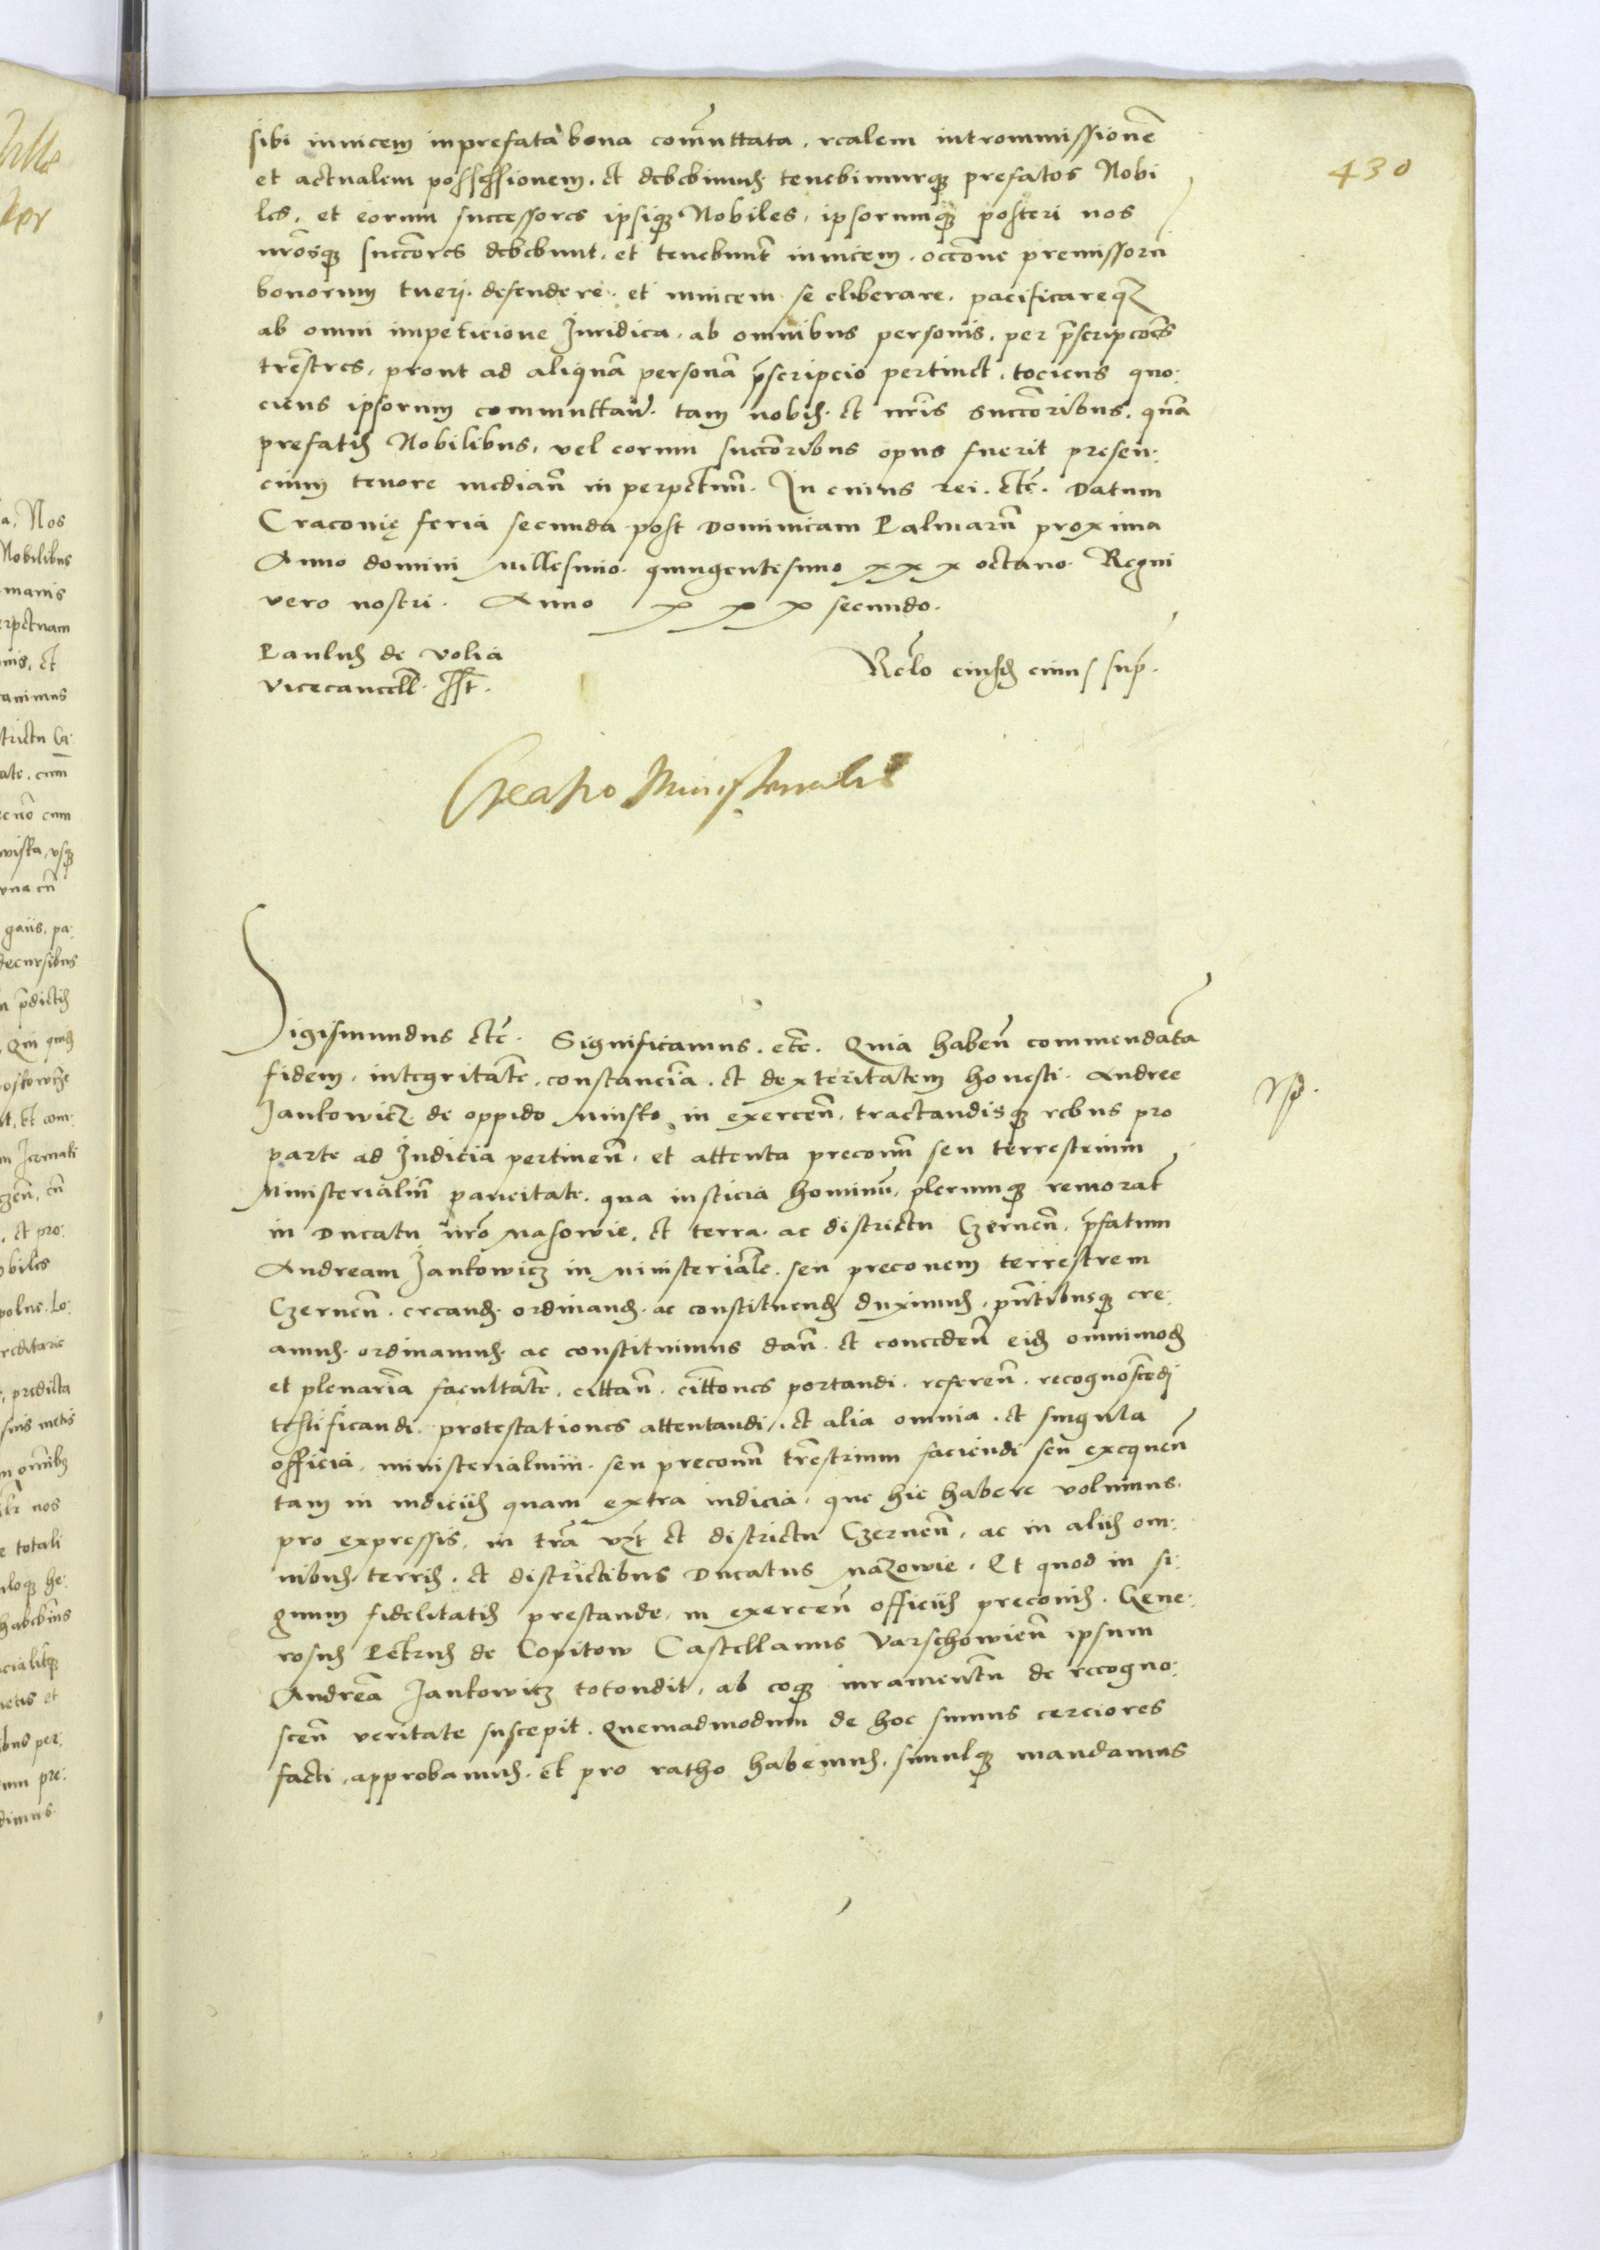 430
sibi invicem in prefata bona com̃uttata, realem intrommissionẽ
et actualem possessionem. et debebimus tenebimurq̃ prefatos Nobi
les, et eorum successores ipsiq̃ Nobiles, ipsorumq̃ posteri nos
nr̃osq̃ succc̃ores debebunt. et tenebunt̃ invicem. occc̃one premissorũ
bonorum tueri. defendere. et invicem se eliberare. pacificareq̃
ab omni impeticione Juridica. ab omnibus personis. per p̃scripc̃oes
tr̃estres, prout ad aliquã personã p̃scripcio pertinet. tociens quo:
ciens ipsorum commuttañ. tam nobis. et nr̃is succc̃oribus. quã
prefatis Nobilibus, vel eorum succc̃oribus opus fuerit presen:
cium tenore median̄ in perpetuũ. In cuius rei. etc̃. Datum
Cracovię feria secunda post Dominicam Palmarũ proxima
Anno domini Millesimo. quingentesimo xxx octavo. Regni
vero nostri. Anno xxx secundo.
Paulus de Volia
Vicecancell̃. sst.
Rel̃o eiusd̃ cuius sup̃.
Creatio Ministerialis
Sigismundus etc̃. Significamus. etc̃. Quia haben̄ commendatã
fidem. integritatẽ. constanciã. et dexteritatem honesti. Andree
Jankowicz de oppido Minsko in exercen̄. tractandisq̃ rebus pro
parte ad Judicia pertinen̄. et attenta preconũ seu terrestrium
Ministerialiũ paucitate. qua iusticia hominũ, plerumq̃ remorat̃
in Ducatu nr̃o Masowie. et terra. ac districtu Czernen̄. p̃fatum
Andream Jankowicz in Ministerialẽ. seu preconem terrestrem
Czernen̄. creand̃. ordinand̃. ac constituend̃ duximus. pñtibusq̃ cre:
amus. ordinamus ac constituimus dan̄. et conceden̄ eid̃ omnimod̃
et plenariã facultatẽ. cittan̄. cittc̃ones portandi. referen̄. recognoscẽdi
testificandi. protestationes attentandi. et alia omnia. et singula
officia. ministerialium. seu preconũ tr̃estrium faciendi seu exequen̄
tam in iudiciis quam extra iudicia. que hic habere volumus.
pro expressis. in tr̃a vz̃t et districtu Czernen̄. ac in aliis om:
nibus. terris. et districtibus Ducatus Mazowie. Et quod in si:
gnum fidelitatis prestande. in exercen̄ officiis preconis. Gene:
rosus Petrus de Copitow Castellanus Varschowien̄ ipsum
Andreã Jankowicz totondit. ab eoq̃ iuramentũ de recogno:
scen̄ veritate suscepit. Quemadmodum de hoc sumus cerciores
facti. approbamus. et pro ratho habemus. simulq̃ mandamus